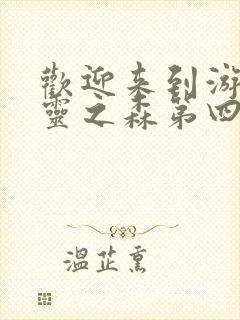 歡迎来到游
靈之森第四
温芷熏